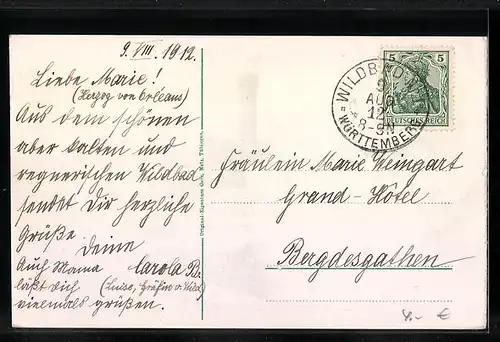 9. VIII. 1912.
Liebe Marie!
(Herzog von Orléans)
Aus dem schönen
aber kalten und
regnerischen Wildbad
sendet Dir herzliche
Grüße
Deine
Carola B.
Auch Mama
(Luise, Gräfin v.
läßt dich
vielmals grüßen.
WILDBAD
9
AUG
12
8-9N
* WÜRTTEMBERG
5 5
DEUTSCHES REICH
Fräulein Marie Weingart
Grand-Hôtel
Bergdesgathen.
4.- €